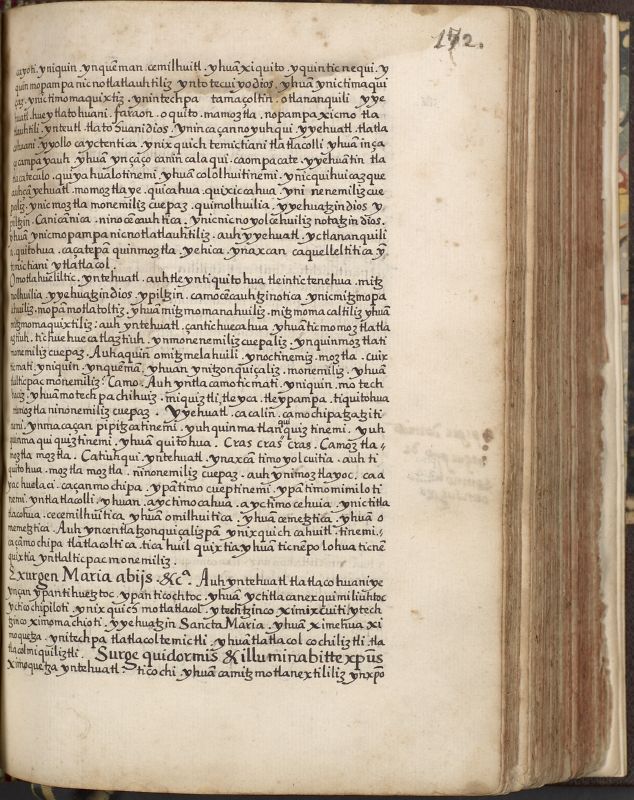 172.
cayoti. yniquin. ynquēman. cemilhuitl. yhuā xiquito. yquin ticnequi. y
quin mopampa nicnotlatlauhtiliz ynto tecuiyo dios. yhuā ynictimaqui
çaz. ynictimomaquixtiz. ynintechpa tamaçoltin. otlananquili yye
huatl. huey tlatohuani. faraon. oquito. mamoztla. nopampa xicmo tla
tlauhtili. ynteutl. tlatohuani dios. ynin caçan noyuhqui. yyehuatl. tlatla
cohuani. yyollo cayctentica. ynixquich temictiani tlatlacolli yhuā inça
ço campa yauh yhuā ynçaço canin calaqui. caompa cate. yyehuātin tla
tlacateculo. quiyahualotinemi. yhuā cololhuitinemi. ynicquihuicazque
auh çā yehuatl. momoztlaye. quicahua. quixiccahua. yni nenemiliz cue
paliz. ynic moztla monemiliz cuepaz. quimolhuilia. yyehuatzin dios y
piltzin. Canicānica. ninocēcauhtica. ynicnicnoyolcēhuiliz notatzin dios.
yhuā ynicmopampa nicnotlatlauhtiliz. auh yyehuatl. yctlananquili
a. quitohua. caçatepā quinmoztla. yehica. ynaxcan caquelleltitica ȳ
temictiani ytlātlacol.
Omotlahuēliltic. yntehuatl. auhtle yntiquitohua tleintictenehua. mitz
molhuilia yyehuatzin dios. ypiltzin. camocēcauhtzinotica ynicmitzmopa
lhuiliz. mopāmotlatoltiz. yhuā mitzmomanahuiliz. mitzmomacaltiliz yhuā
mitzmomaquixtiliz: auh yntehuatl. çantichuecahua yhuā ticmomoztlatla
ztiuh. tichuehuecatlaztiuh. ynmonenemiliz cuepaliz. ynquinmoztlati
monemiliz cuepaz. Auh aquin omitzmelahuili. ynoctinemiz. moztla. cuix
ticmati. yniquin. ynquēmā. yhuan ynitzonquiçaliz. monemiliz. yhuā
tlalticpac monemiliz? Camo. Auh yntla camoticmati. yniquin. motech
huiz yhuāmotech pachihuiz. miquiztli, tleyca. tleypampa. tiquitohua
nimoztla ninonemiliz cuepaz. Yyehuatl. cacalin. camochipatzatziti
nemi. ynmacaçan pipitzcatinemi. yuhquinmatlanquiquiz tinemi. yuh
quinmaqui quiztinemi. yhuā quitohua. Cras cras cras. Camoztla
moztla moztla. Catiuhqui yntehuatl. ynaxcā timoyolcuitia. auh ti
quitohua. moztla moztla. ninonemiliz cuepaz. auh ynimoztlayoc. caa
yac huelaci. caçanmochipa. ypātimo cueptinemi. ypātimomimiloti
nemi. yntlatlacolli. yhuan. ayctimocahua. ayctimocehuia. ynictitla
tlacohua. cecemilhuitica yhuā omilhuitica. yhuā cemetztica. yhuā o
memetztica. Auh yncentlatzonquiçalizpā ynixquich cahuitl. tinemi.
caçāmochipa tlatlacoltica. ticahuilquixtia yhuā ticnēpolohua ticnē
quixtia yntlalticpac monemiliz.
Exurgen Maria abijs. &c. Auh yntehuatl tlatlacohuaniye
ynçan ypantihuetztoc. ypanticochtoc. yhuā yctitlacanexquimiliuhtoc
ycticochipiloti ynixquich motlatlacol. ytechtzinco ximixcuiti ytech
tzinco ximomachioti. yyehuatzin Sancta Maria. yhuā ximehua xi
moquetza. ynitechpa tlatlacoltemictli. yhuātlatlacol cochiliztli. tla
tlacolmiquiliztli. Surge quidormis & illuminabitte xp̄us
Ximoquetza yntehuatl. ticochi. yhuā camitzmotlanextililiz ynxp̄o